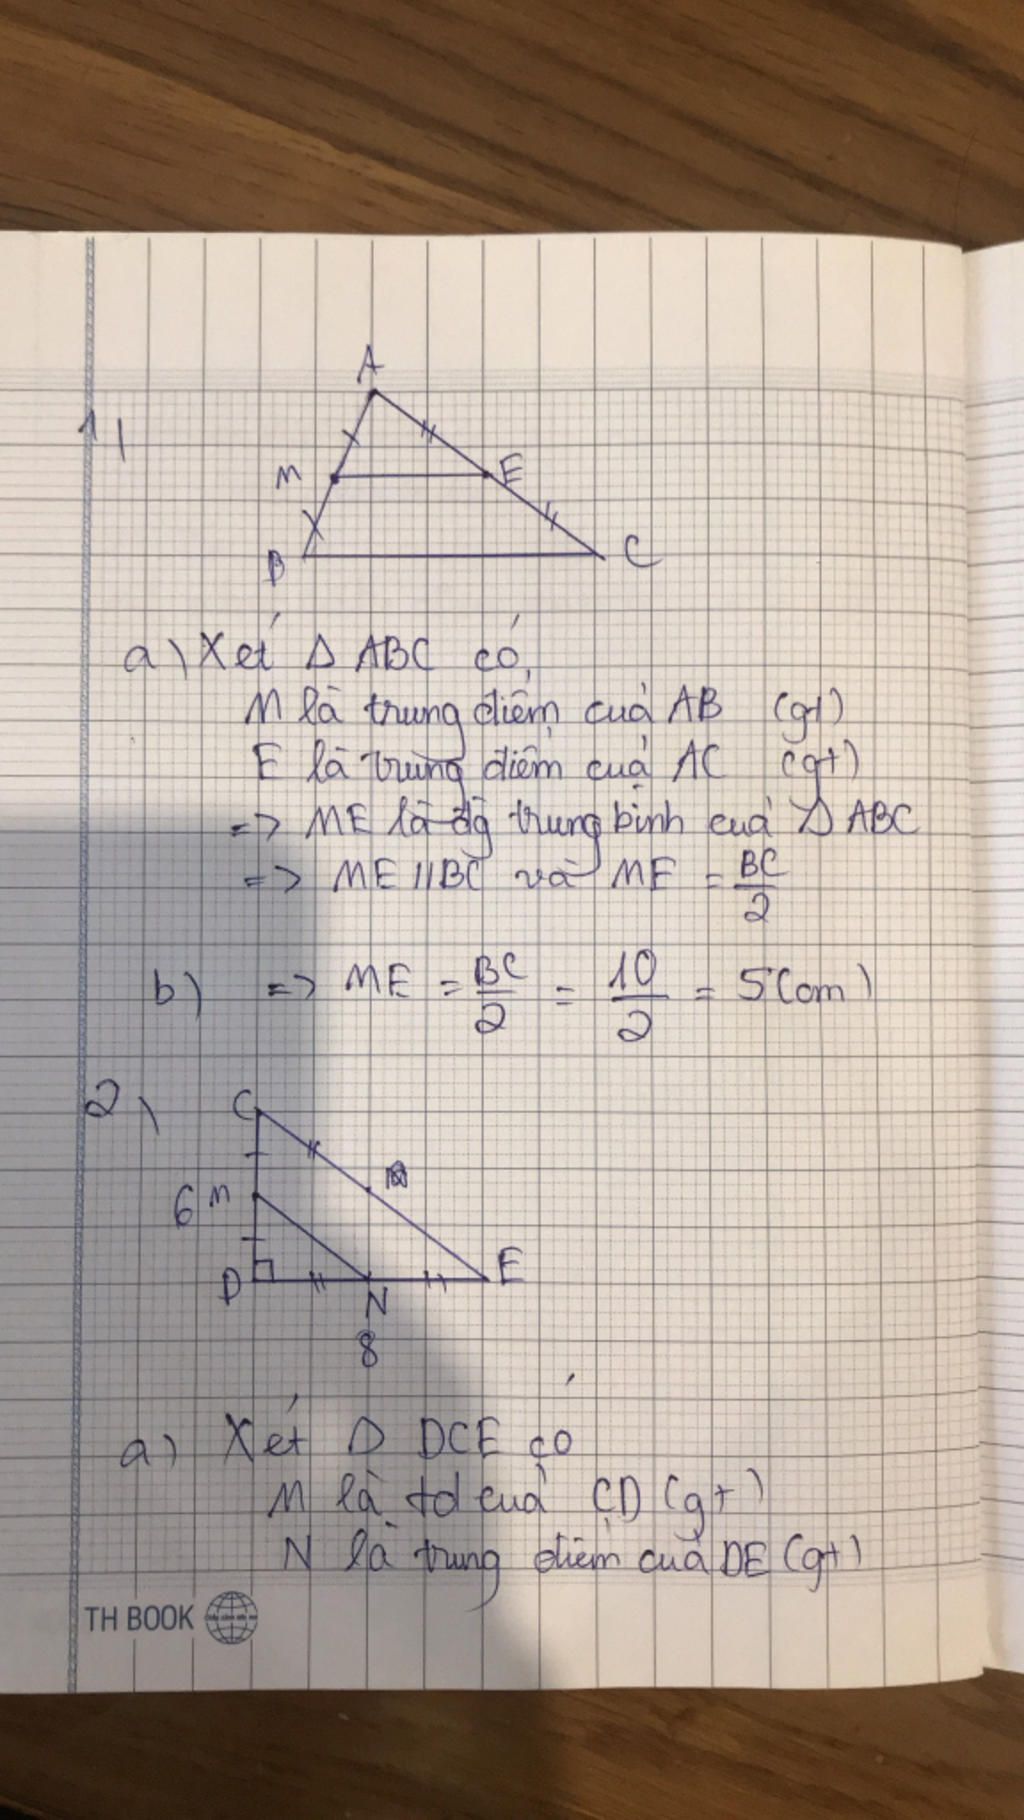 1)
A
M
E
B
C
a) Xét Δ ABC có,
M là trung điểm của AB (gt)
E là trung điểm của AC (gt)
=> ME là đg trung bình của Δ ABC
=> ME // BC và ME = BC/2
b) => ME = BC/2 = 10/2 = 5(cm)
2)
C
6 M
D
E
N
8
a) Xét Δ DCE có
M là td của CD (gt)
N là trung điểm của DE (gt)
TH BOOK